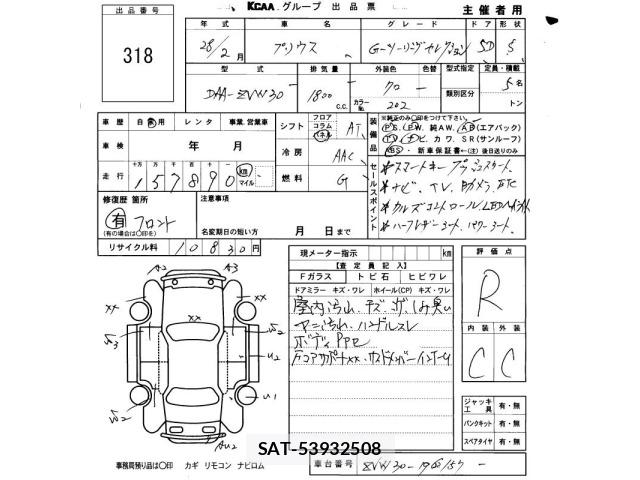 KCAA グループ 出品票 主催者用
出品番号
318
年式 車名 グレード ドア 形状
28/2月 プリウス G-ツーリングセレクション 5D 5
型式 排気量 外装色 色替 型式指定 定員・積載
DAA-ZVW30- 1800 c.c. クロ カラー№ 202 類別区分 5名 トン
車歴 自家用 レンタ 事業、営業車
シフト フロア コラム パネル AT
車検 年 月
冷房 AAC
走行 十万 万 千 百 十 157890 km マイル
燃料 G
装備品
※純正のみ○印をつけて下さい。
P.S. P.W. 純AW. AB(エアバック)
TV. ナビ. カワ. SR(サンルーフ)
ABS. 新車保証書←(注)後日送りのみ
セールスポイント
*スマートキー プッシュスタート
*ナビ、TV、カメラ、ETC
*クルーズコントロール、LEDヘッドライト
*ハーフレザーシート、パワーシート
修復歴 箇所
有 フロント
(有の場合は○印を)
注意事項
名変期日の短い方 月 日まで
リサイクル料 10830円
現メーター指示 km
【査定員記入】
Fガラス トビ石 ヒビワレ
ドアミラー キズ・ワレ ホイール(CP) キズ・ワレ
室内汚れ、キズ、
ハンドルスレ
評価点
R
内装 外装
C C
ジャッキ工具 有・無
パンクキット 有・無
スペアタイヤ 有・無
A2 A3
xx xx
xx
U2
U1
AU2
SAT-53932508
事務局預り品は○印 カギ リモコン ナビロム
車台番号 ZVW30-